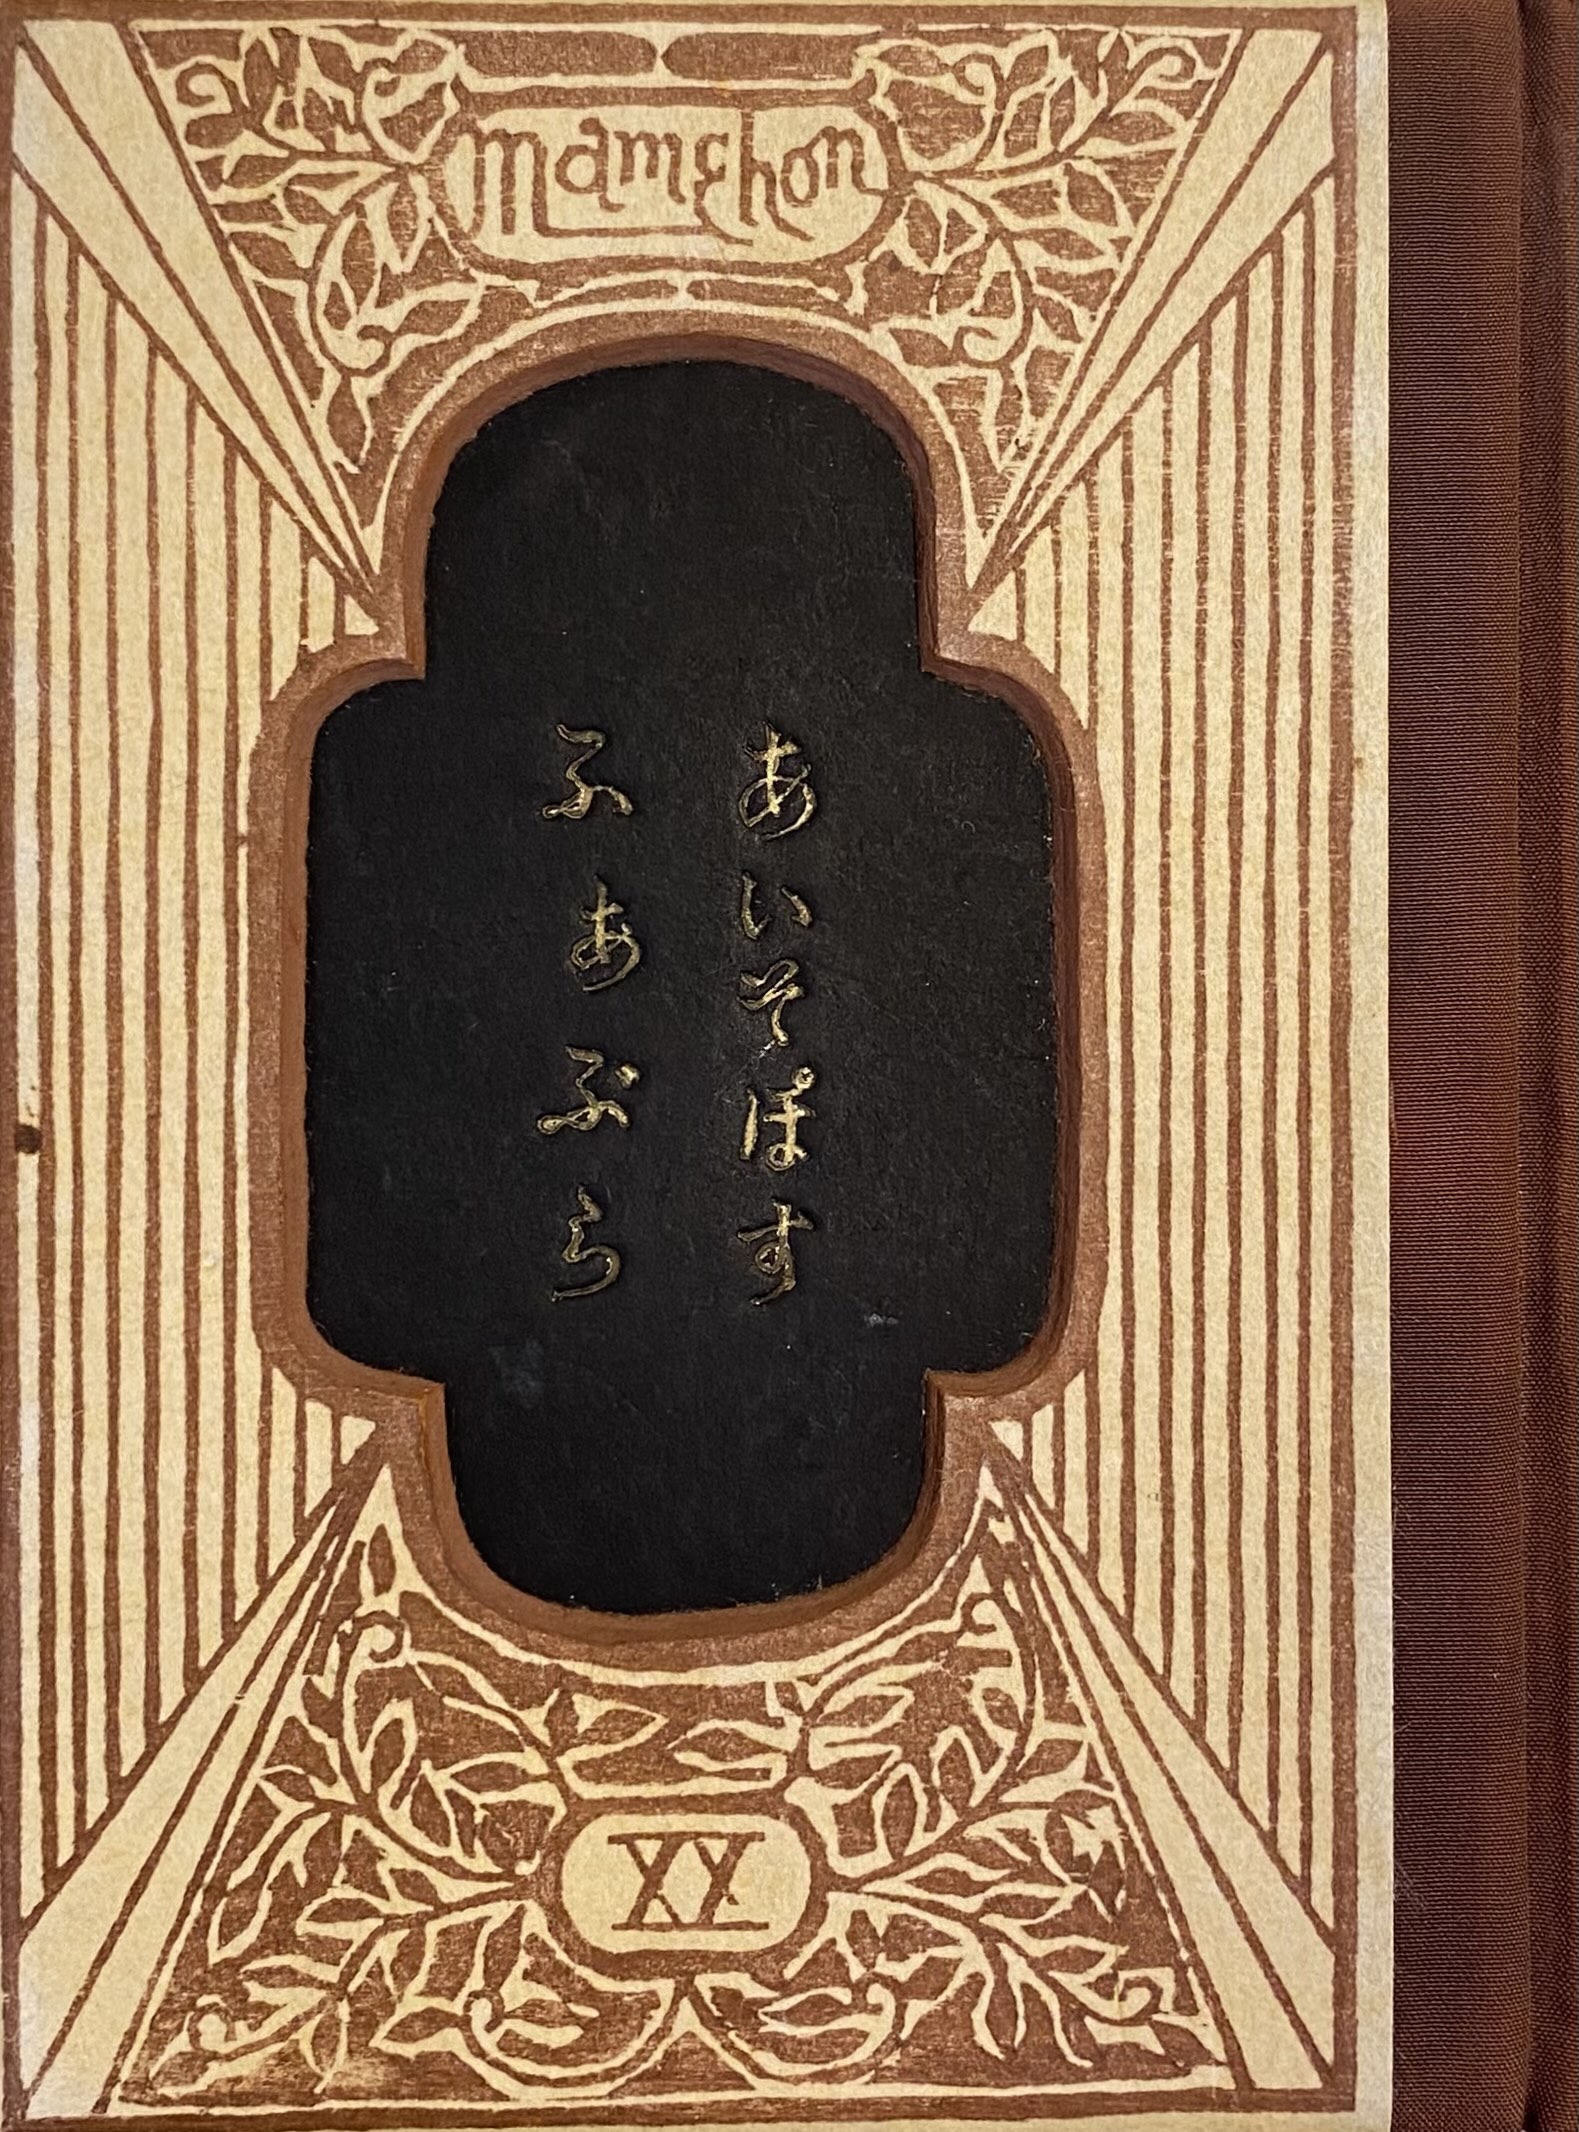 mameHon
あいそぽす
ふあぶら
XX